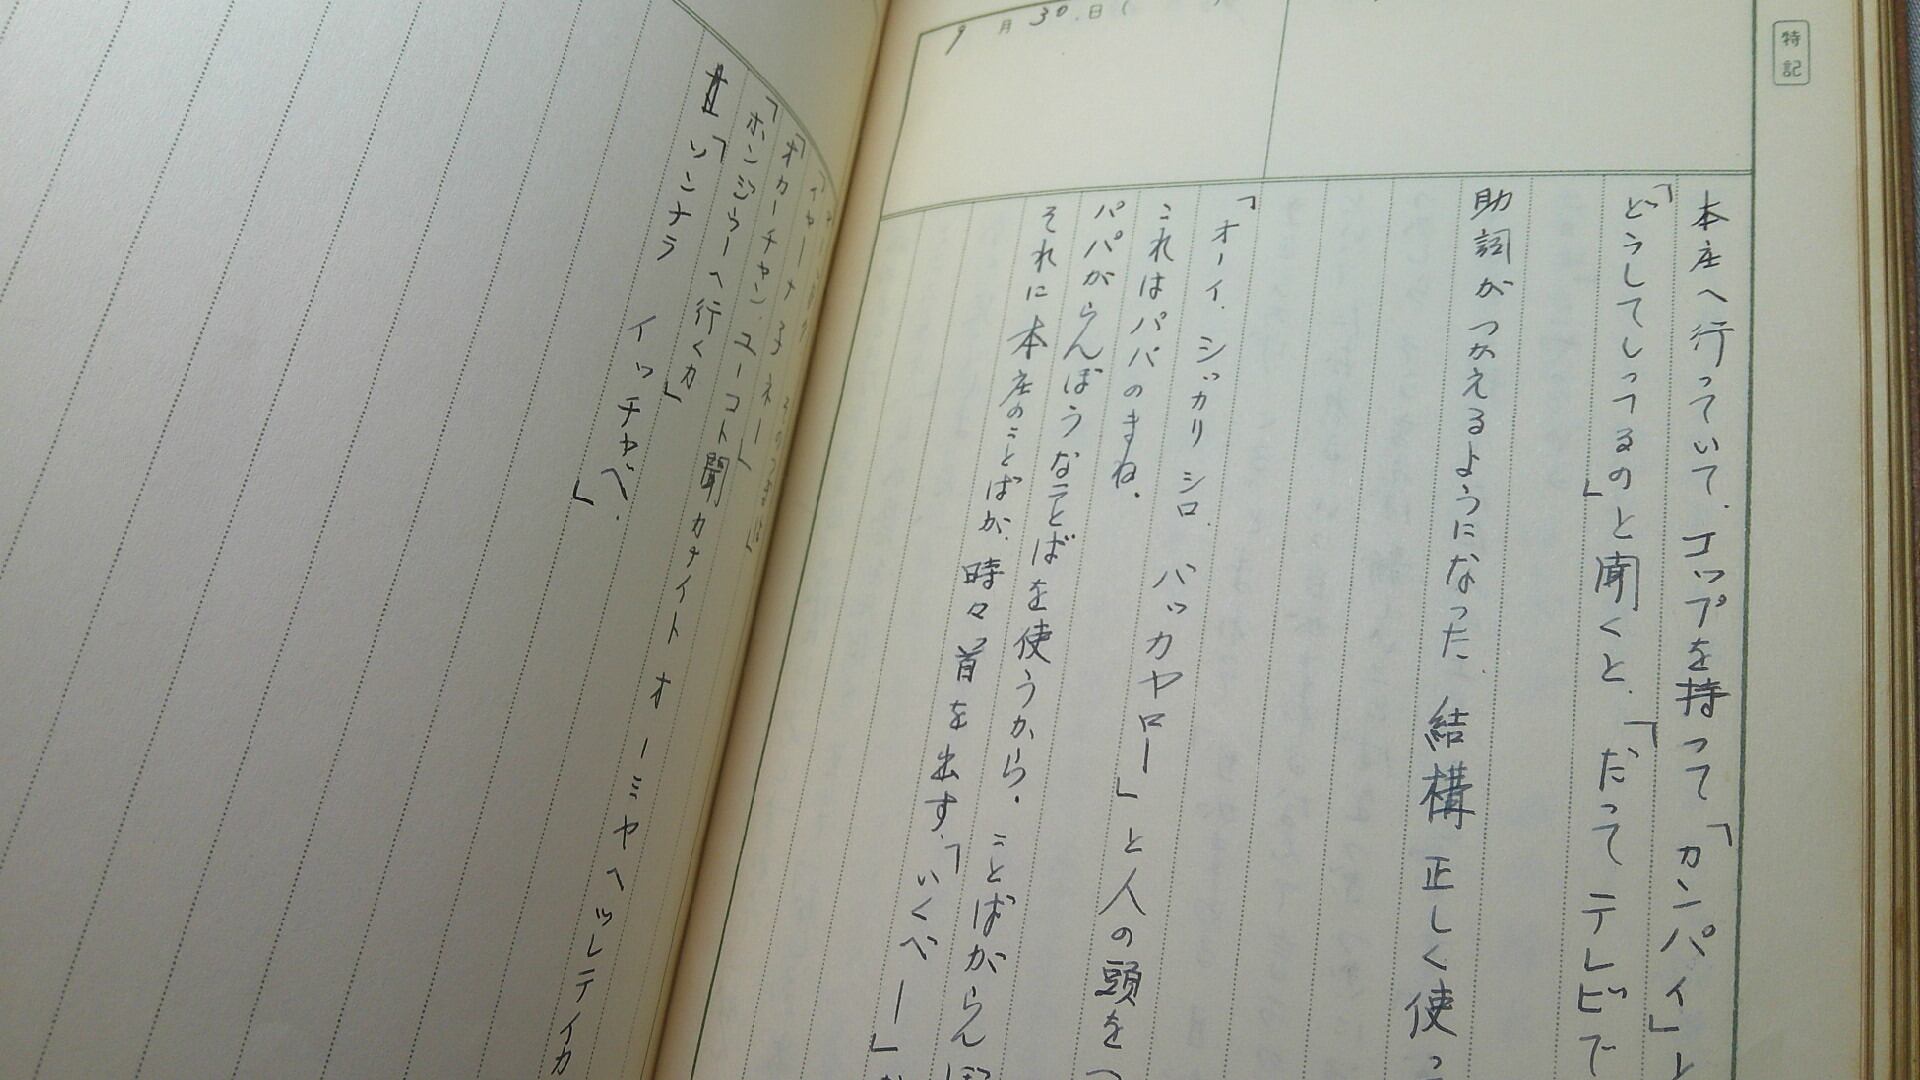 特記
9月30日(
本庄へ行っていて、コップを持って「カンパイ」と
「どうしてしってるの」と聞くと、「だってテレビで
助詞がつかえるようになった、結構正しく使っ
「オーイ、シッカリシロ、バッカヤロー」と人の頭を
これはパパのまね。
パパがらんぼうなことばを使うから、ことばがらんぼ
それに本庄のことばが、時々首を出す。「いくべー」
「オカーチャン、ユーコト聞カナイト オーミヤヘツレテイカ
「ホンジョーヘ行くカ」
「ソンナラ イッチャベ、」